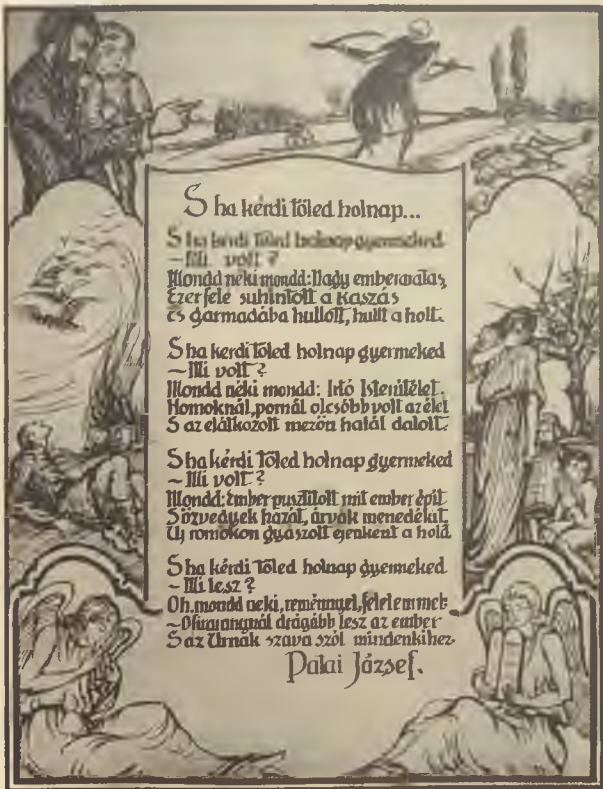 S ha kérdi tőled holnap...
S ha kérdi tőled holnap gyermeked
~ Mi volt?
Mondd neki mondd: Nagy emberaratas,
Ezerfele suhintott a kaszás
és garmadába hullott, hullt a holt.
S ha kérdi tőled holnap gyermeked
~ Mi volt?
Mondd néki mondd: Irtó Istenítélet.
Homoknál, pornál olcsóbb volt az élet
S az elátkozott mezőn halál dalolt.
S ha kérdi tőled holnap gyermeked
~ Mi volt?
Mondd: Ember pusztított mit ember épít
S özvegyek házát, árvák menedékit.
Uj romokon gyászolt ejenként a hold.
S ha kérdi tőled holnap gyermeked
~ Mi lesz?
Oh, mondd neki, reménnyel, felelemmel
~ Ofirarangnál drágább lesz az ember
S az Úrnak szava szól mindenkihez
Patai József.